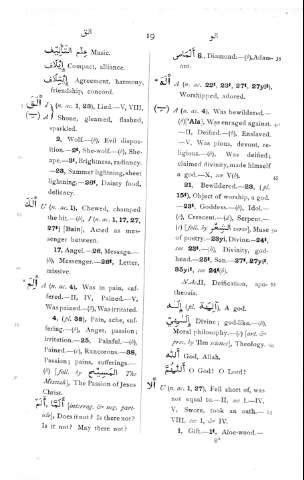 الق
19
الو
علم التأليف Music.
إيلاف Compact, alliance.
إئتلاف Agreement, harmony,
friendship, concord.
ألق I (n. ac. 1, 23), Lied.—V, VIII,
Shone, gleamed, flashed,
sparkled.
2, Wolf.—(b), Evil dispo-
sition.—2t, She-wolf.—(b), She-
ape.—3t, Brightness, radiancy.
—23, Summer lightning, sheet
lightning.—26t, Dainty food,
delicacy.
U (n. ac. 1), Chewed, champed
the bit.—(b), I (n. ac. 1, 17, 27,
27t) [Bain], Acted as mes-
senger between.
17, Angel.—26, Message.—
(b), Messenger.—26t, Letter,
missive.
ألم A (n. ac. 4), Was in pain, suf-
fered.—II, IV, Pained.—V,
Was pained.—(b), Was irritated.
4 (pl. 38), Pain, ache, suf-
fering.—(b), Anger, passion;
irritation.—25, Painful.—(b),
Pained.—(c), Rancorous.—38,
Passion; pains, sufferings.—
(b) [foll. by المسيح The
Messiah], The Passion of Jesus
Christ.
ألم, ألما [interrog. & neg. parti-
cle], Does it not? Is there not?
Is it not? May there not?
ألماس S., Diamond.—(b), Adam-
ant.
أله A (n. ac. 22t, 23t, 27t, 27yt),
Worshipped, adored.
A (n. ac. 4), Was bewildered.—
(b) ['Ala], Was enraged against.
—II, Deified.—(b), Enslaved.
—V, Was pious, devout, re-
ligious.—(b), Was deified;
claimed divinity, made himself
a god.—X, as V(b).
21, Bewildered.—23, (pl.
15t), Object of worship, a god.
—23t, Goddess.—(b), Idol.—
(c), Crescent.—(d), Serpent.—
(e) [foll. by الشعر verse], Muse
of poetry.—23y, Divine.—24t,
as 23t.—(b), Divinity, god-
head.—25t, Sun.—27t, 27yt,
35yt, as 24t(b).
N.Ac.II, Deification, apo-
theosis.
إله (pl. آلهة), A god.
إلهي Divine; god-like.—(b),
Moral philosophy.—(c) [art. &
prec. by 'Ilm science], Theology.
الله God, Allah.
اللهم O God! O Lord!
ألا U (n. ac. 1, 27), Fell short of, was
not equal to.—II, as I.—IV,
V, Swore, took an oath.—
VIII, as I, & IV.
1, Gift.—2t, Aloe-wood.—
2*